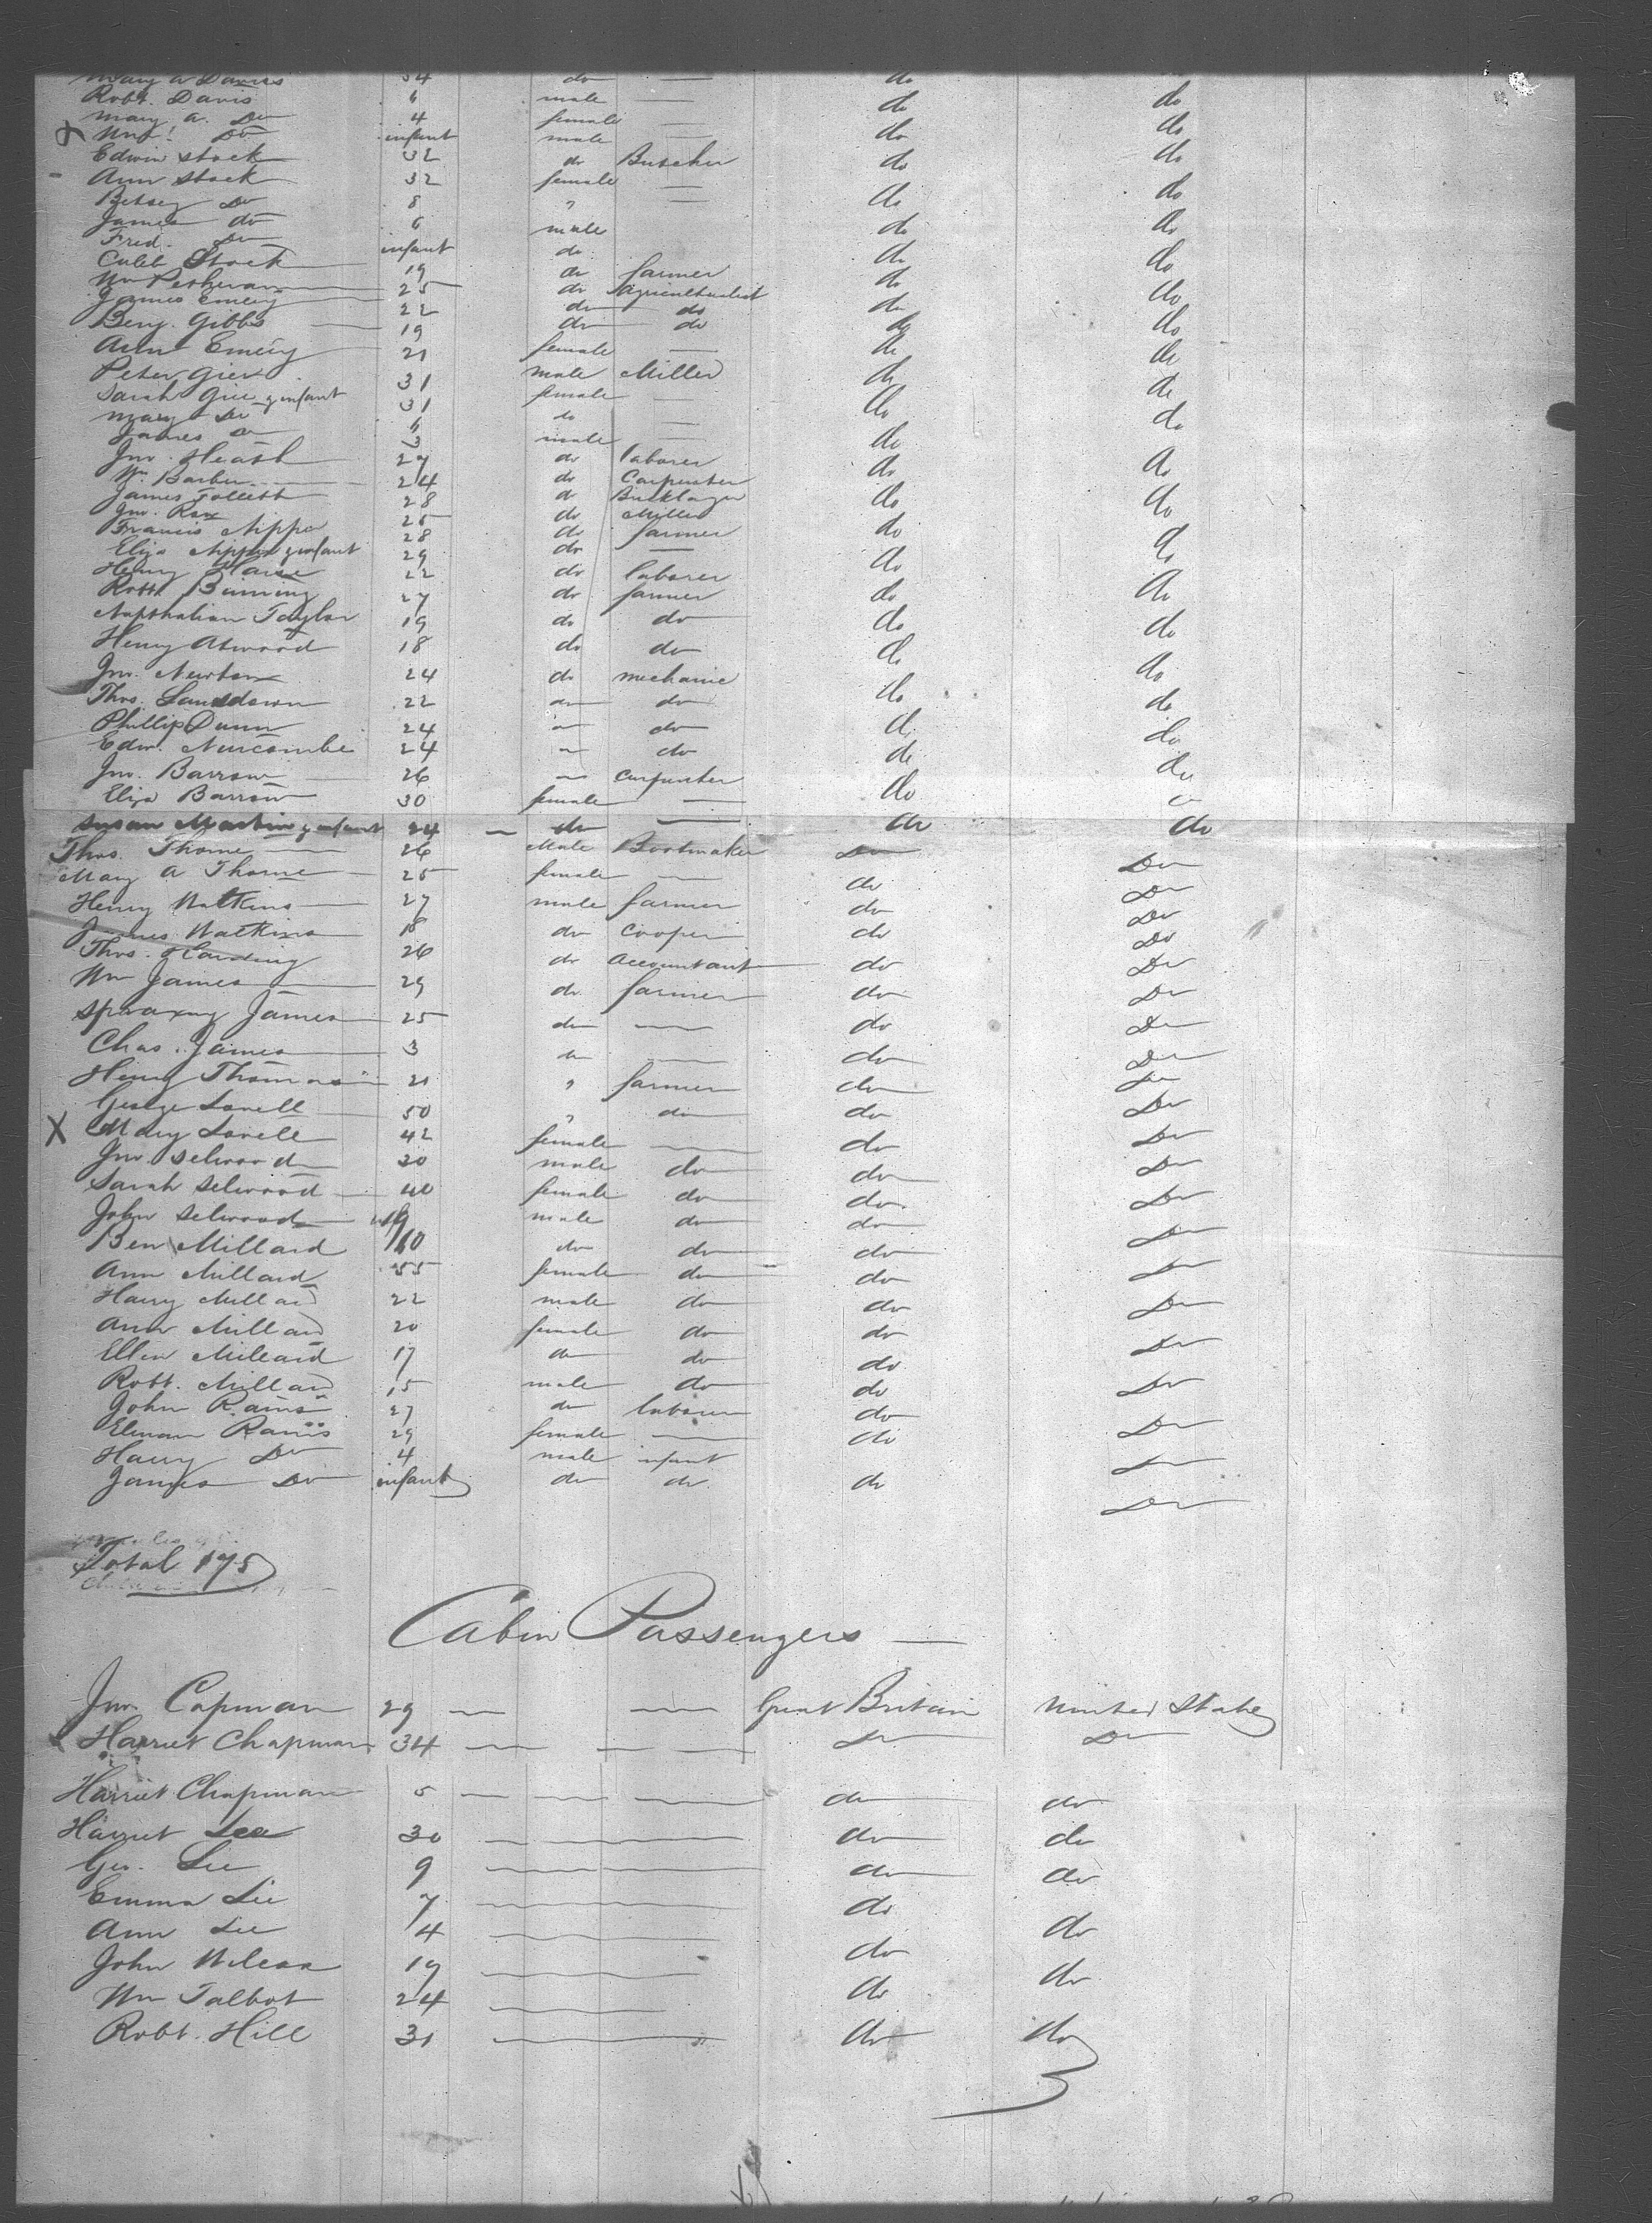 Mary A Davis 34 do — do
Robt. Davis 6 male — do do
Mary A. Do 4 female — do do
Wm. Do infant male do do
Edwin Stock 32 do Butcher do do
Ann Stock 32 female — do do
Betsey Do 8 " do
James do 6 male do do
Fred. Do infant do do do
Caleb Stock 19 do farmer do do
Wm 25 do Agriculturlist do do
James Emery 22 do do do do
Benj. Gibbs 19 do do do do
Ann Emery 21 female — do do
Peter Gier 31 male Miller do do
Sarah Gier & infant 31 female — do do
Mary Do 6 do —
James Do 3 male do
Jno. Heath 27 do laborer do do
Wm. Barber 24 do Carpenter do do
James Tollett 28 do Bricklayer
Jno. Rex 25 do Miller do do
Francis Nippa 28 do farmer
Eliza Nippa & infant 29 do — do
Henry 22 do laborer do
Robt. Binning 27 do farmer do
Napthalian Taylor 19 do do do do
Henry Atwood 18 do do do
Jno. Newton 24 do mechanic do
Thos. Lansdown 22 do do do do
Phillip Dunn 24 " do do do
Edw. Newcombe 24 " do do do
Jno. Barrow 26 " carpenter
Eliza Barrow 30 female — do
Susan Martin & infant 24 — do — do do
Thos. Thorne 26 Male Bootmaker Do Do
Mary A Thorne 25 female — do Do
Henry Watkins 27 male farmer do Do
James Watkins 18 do Cooper do Do
Thos. Harding 26 do Accountant do Do
Wm James 29 do farmer do Do
James 25 do — do Do
Chas. James 3 do — do Do
Henry Thomas 21 " farmer do Do
George Lovell 50 " do do Do
X Mary Lovell 42 female — do Do
Jno. Selwood 30 male do do Do
Sarah Selwood 40 female do do Do
John Selwood 19 male do do
Ben Millard 60 do do do Do
Ann Millard 55 female do do Do
Harry Millard 22 male do do Do
Ann Millard 20 female do do
Ellen Millard 17 do do do Do
Robt. Millard 15 male do do Do
John Rains 27 do laborer do
Rains 29 female — do Do
Harry Do 4 male infant Do
James Do infant do do do Do
Total 175
Cabin Passengers —
Jno. Capman 29 — — Great Britain United States
Harriet Chapman 34 — — — Do Do
Harriet Chapman 5 — — — do do
Harriet Lee 30 — do do
Geo. Lee 9 — do do
Emma Lee 7 — do
Ann Lee 4 — do do
John Wilcox 19 — do
Wm Talbot 24 — do do
Robt. Hill 31 — do do